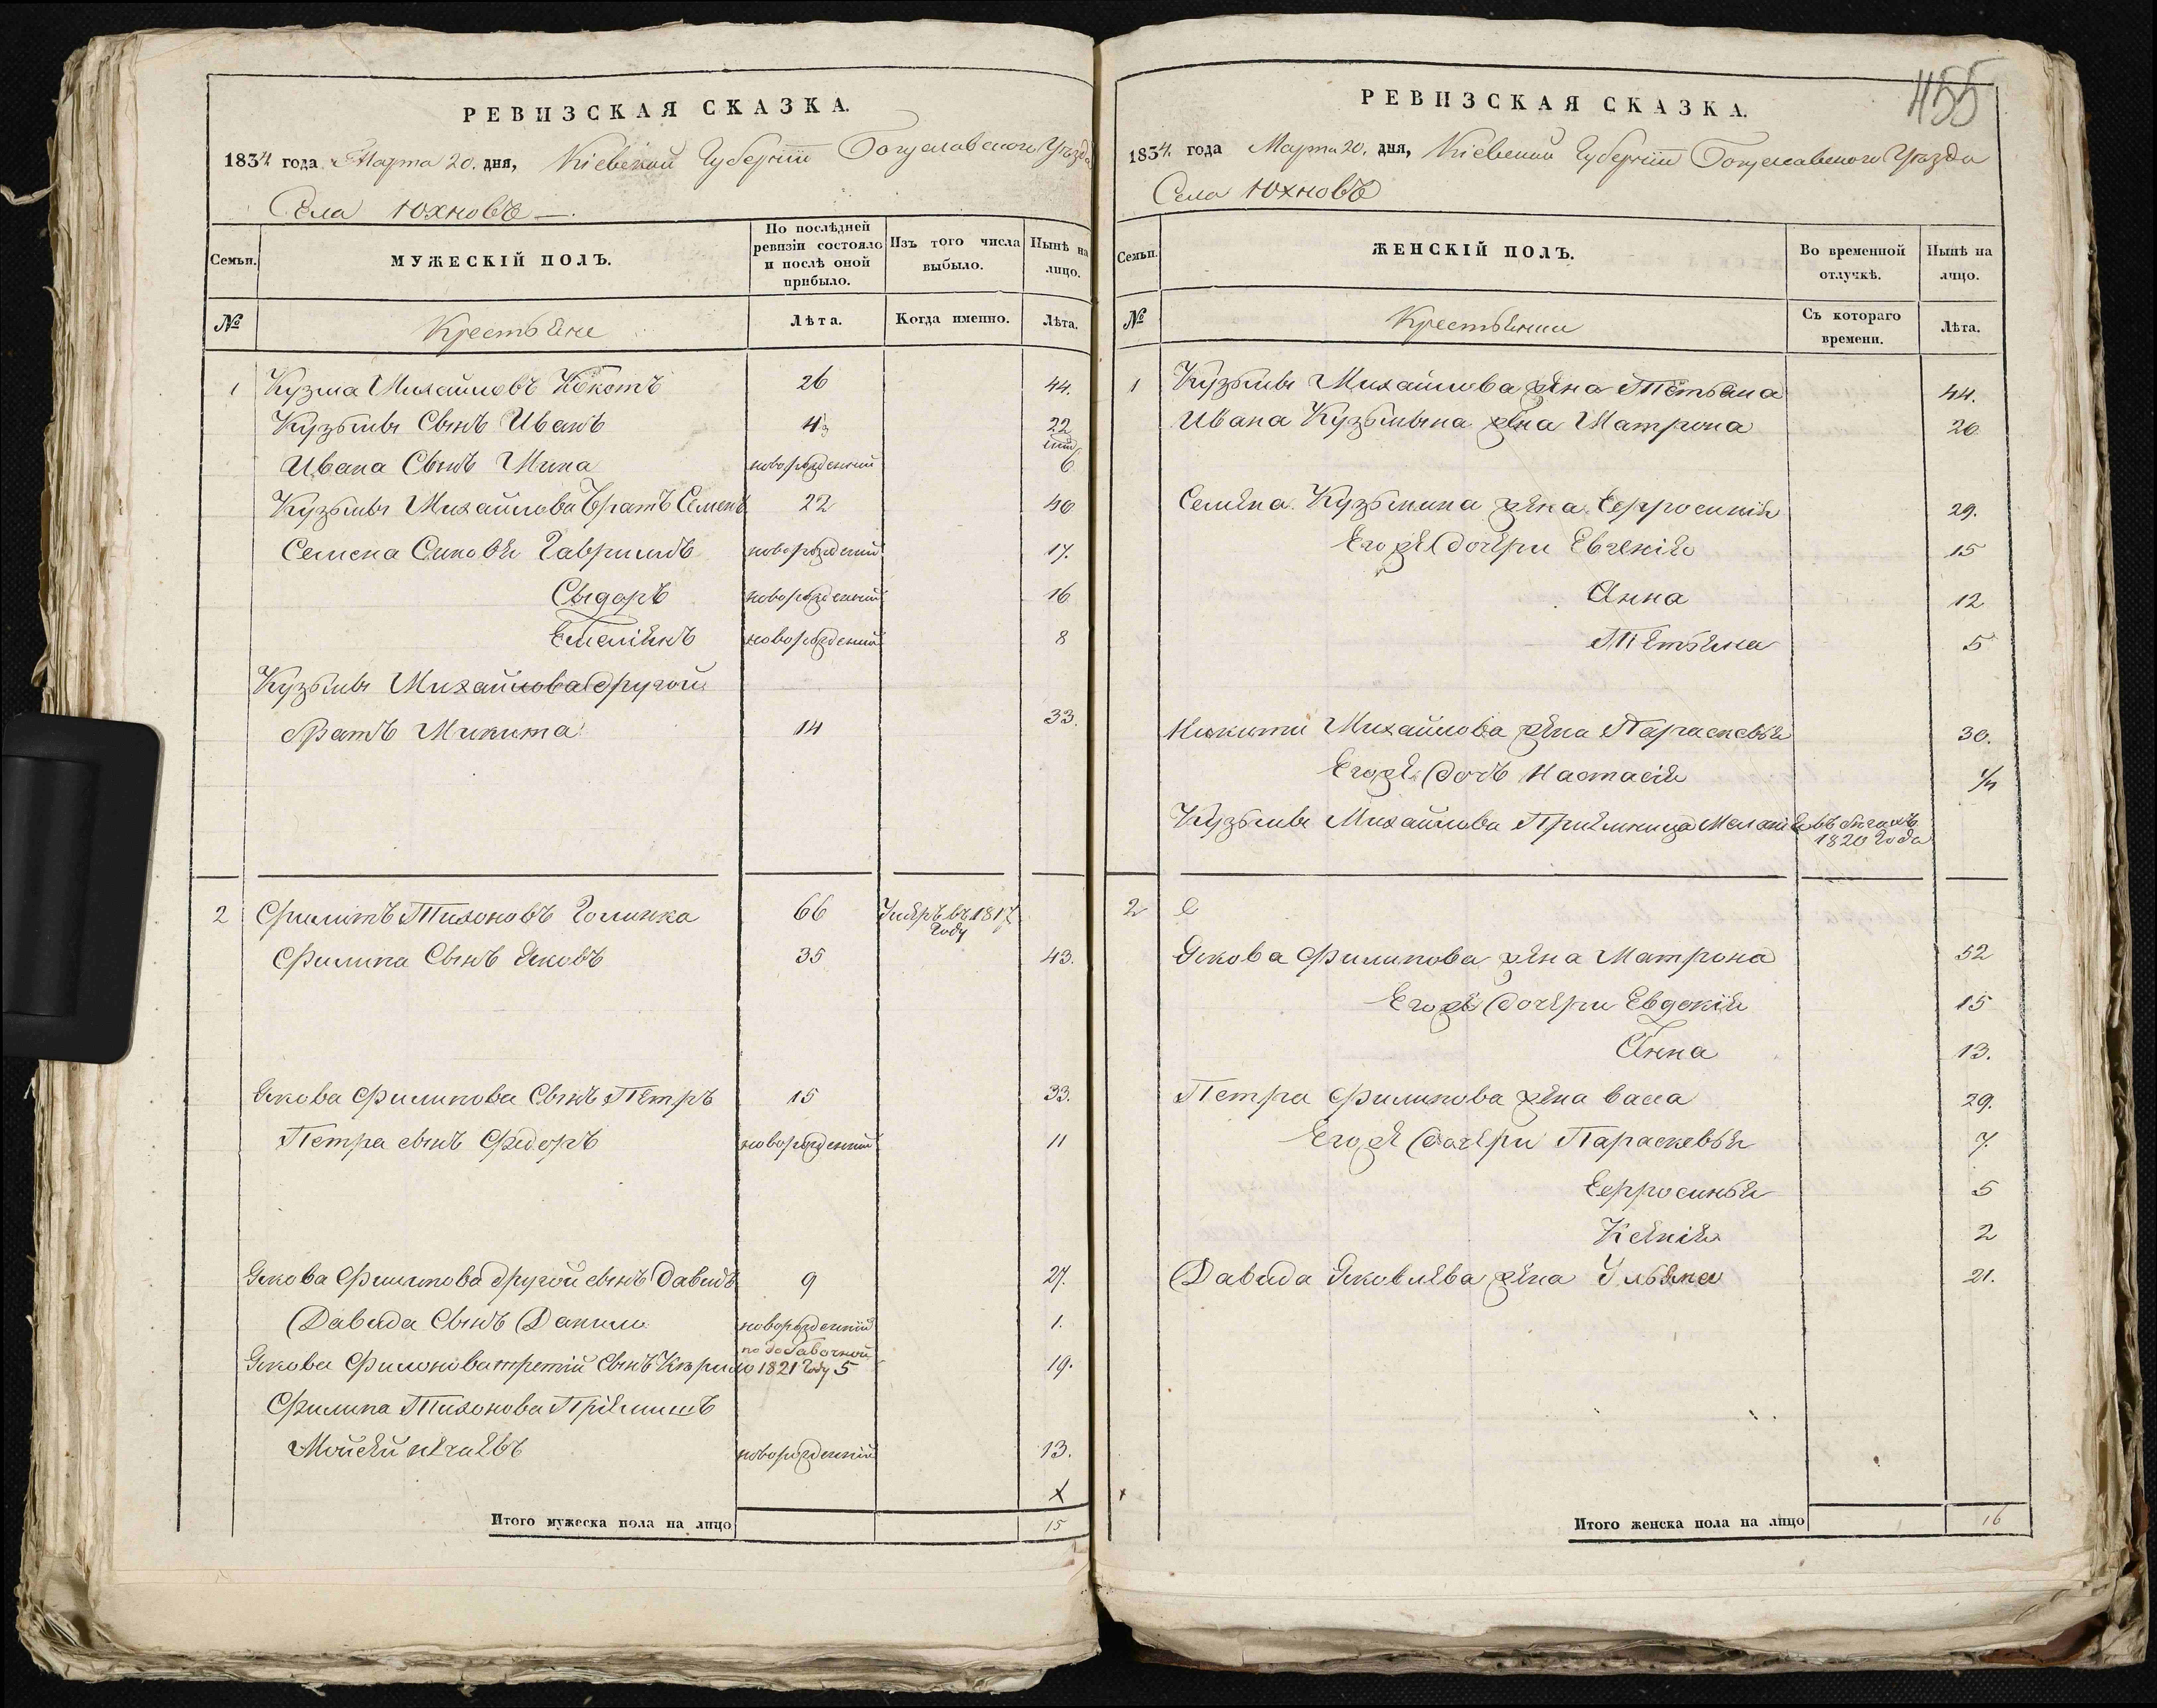 РЕВИЗСКАЯ СКАЗКА.
1834 года Марта 20. дня, Кіевской Губерніи Богуславского Уѣзда
Села Юхновъ
Семьи.
МУЖЕСКІЙ ПОЛЪ.
По послѣдней ревизіи состояло и послѣ оной прибыло.
Изъ того числа выбыло.
Нынѣ на лицо.
№
Крестьяне
Лѣта.
Когда именно.
Лѣта.
1 Кузма Михайловъ Кокотъ 26 44.
Кузьмы Сынъ Иванъ 4 22
Ивана Сынъ Мина новорожденный 6
Кузьмы Михайлова братъ Семенъ 22 40
Семена Синовья Гаврило новорожденний 17.
Сыдоръ новорожденный 16
Емеліянъ новорожденный 8
Кузьмы Михайлова другой
братъ Микита 14 33.
2 Филипъ Тихоновъ Голинка 66 Умеръ въ 1817 Году
Филипа Сынъ Яковъ 35 43.
Якова Филипова Сынъ Петръ 15 33.
Петра сынъ Федоръ новорожденний 11
Якова Филипова другой сынъ Давидъ 9 27.
Давида Сынъ Данило новорожденній 1.
Якова Филонова третій Сынъ Кирило по добавочной 1821 Году 5 19.
Филипа Тихонова Пріемишъ
Мойсей новорожденній 13.
х
Итого мужеска пола на лицо 15
455
РЕВИЗСКАЯ СКАЗКА.
1834. года Марта 20. дня, Кіевской Губерніи Богуславского Уѣзда
Села Юхновъ
Семьи.
ЖЕНСКІЙ ПОЛЪ.
Во временной отлучкѣ.
Нынѣ на лицо.
№
Крестьянки
Съ котораго времени.
Лѣта.
1 Кузьмы Михайлова жена Тетьяна 44.
Ивана Кузьмына жена Матрона 20
Семена Кузьмина жена Ефросинія 29.
Его же дочери Евгенія 15
Анна 12
Тетьяна 5
Никити Михайлова жена Параскевья 30.
Его же дочь Настасія 1/4
Кузьмы Михайлова Пріемница Меланія въ бегахъ 1820 Года
2
Якова Филипова жена Матрона 52
Его же дочери Евдокія 15
Анна 13.
Петра Филипова жена Васа 29.
Его же дочери Параскевья 7.
Ефросинья 5
Ксенія 2
Давида Яковлева жена Ульяна 21.
х
Итого женска пола на лицо 16